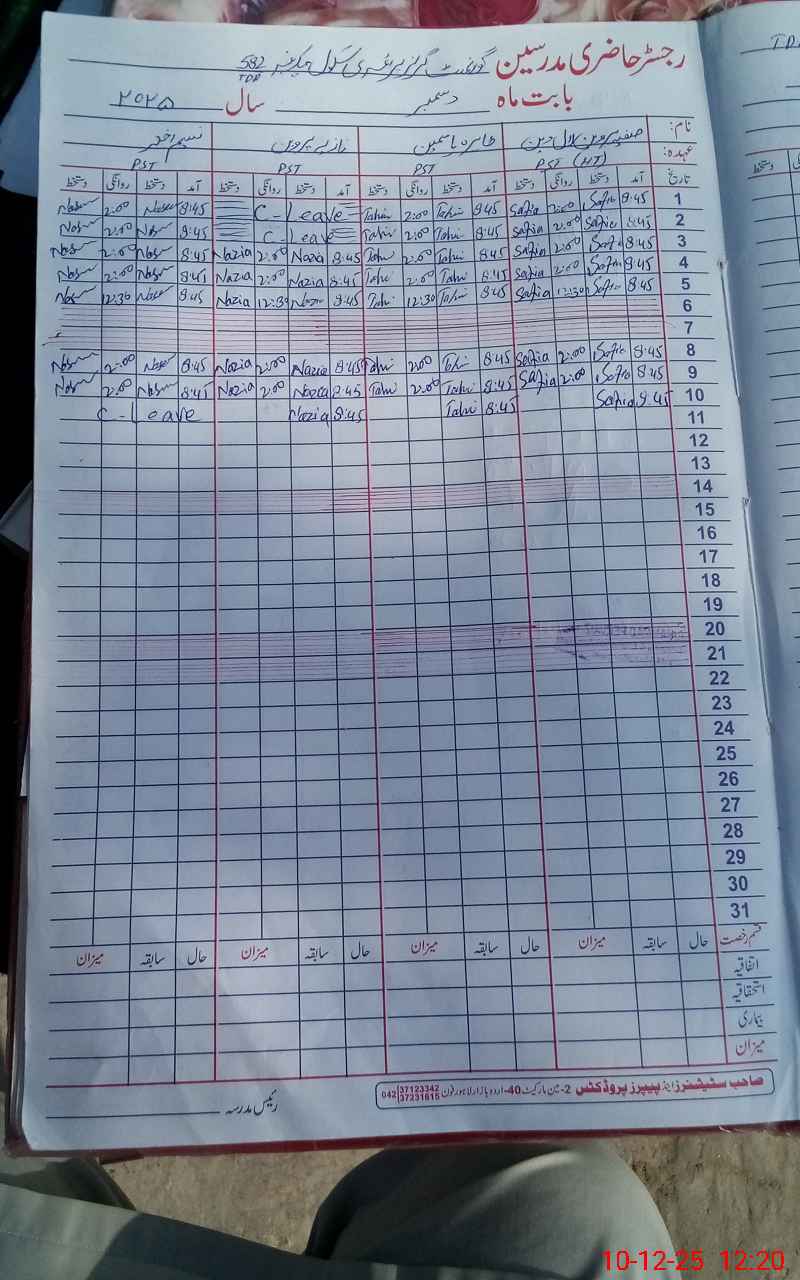 رجسٹر حاضری مدرسین گورنمنٹ گرلز پرائمری سکول چک نمبر 582 TDA
بابت ماہ دسمبر سال ۲۰۲۵
نام: صفیہ پروین لال دین طاہرہ یاسمین نازیہ پروین نسیم اختر
عہدہ: PST (HT) PST PST PST
تاریخ آمد دستخط روانگی دستخط آمد دستخط روانگی دستخط آمد دستخط روانگی دستخط آمد دستخط روانگی دستخط
1 8:45 Safia 2:00 Safia 8:45 Tahir 2:00 Tahir C-Leave 8:45 2:00
2 8:45 Safia 2:00 Safia 8:45 Tahir 2:00 Tahir C-Leave 8:45 2:00
3 8:45 Safia 2:00 Safia 8:45 Tahir 2:00 Tahir 8:45 Nazia 2:00 Nazia 8:45 2:00
4 8:45 Safia 2:00 Safia 8:45 Tahir 2:00 Tahir 8:45 Nazia 2:00 Nazia 8:45 2:00
5 8:45 Safia 12:30 Safia 8:45 Tahir 12:30 Tahir 8:45 Nazia 12:30 Nazia 8:45 12:30
6
7
8 8:45 Safia 2:00 Safia 8:45 Tahir 2:00 Tahir 8:45 Nazia 2:00 Nazia 8:45 2:00
9 8:45 Safia 2:00 Safia 8:45 Tahir 2:00 Tahir 8:45 Nazia 2:00 Nazia 8:45 2:00
10 8:45 Safia 8:45 Tahir 8:45 Nazia C-Leave
11
12
13
14
15
16
17
18
19
20
21
22
23
24
25
26
27
28
29
30
31
قسم رخصت حال سابقہ میزان حال سابقہ میزان حال سابقہ میزان حال سابقہ میزان
اتفاقیہ
استحقاقیہ
بیماری
میزان
صاحب سٹیشنرز اینڈ پیپرز پروڈکٹس 2-مین مارکیٹ 40-اردو بازار لاہور فون 042 37123342 37231615
رئیس مدرسہ
10-12-25 12:20